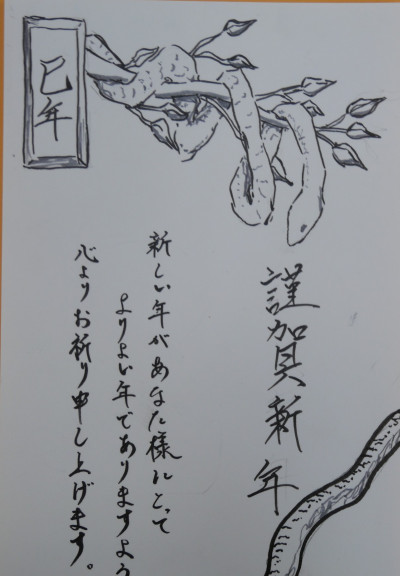 巳年
謹賀新年
新しい年があなた様にとって
よりよい年でありますよう
心よりお祈り申し上げます。